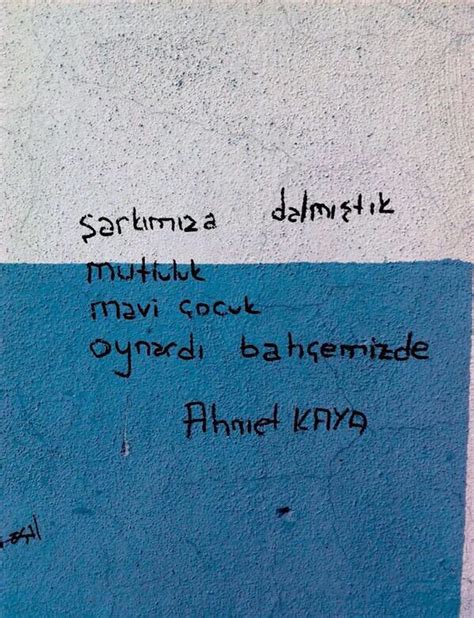 şarkımıza dalmıştık
mutluluk
mavi çocuk
oynardı bahçemizde
Ahmet KAYA